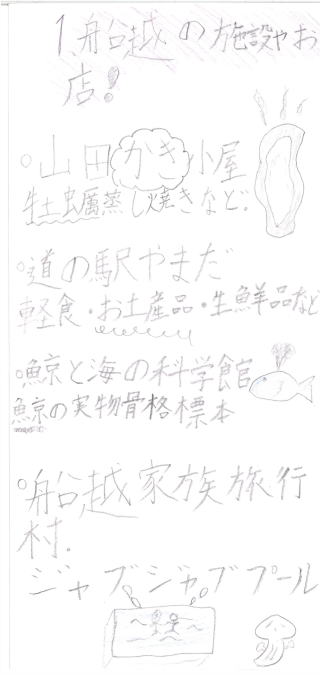 1.船越の施設やお
店!
○山田かき小屋
牡蠣蒸し焼きなど。
○道の駅やまだ
軽食・お土産品・生鮮品など
○鯨と海の科学館
鯨の実物骨格標本
○船越家族旅行
村.
ジャブジャブプール